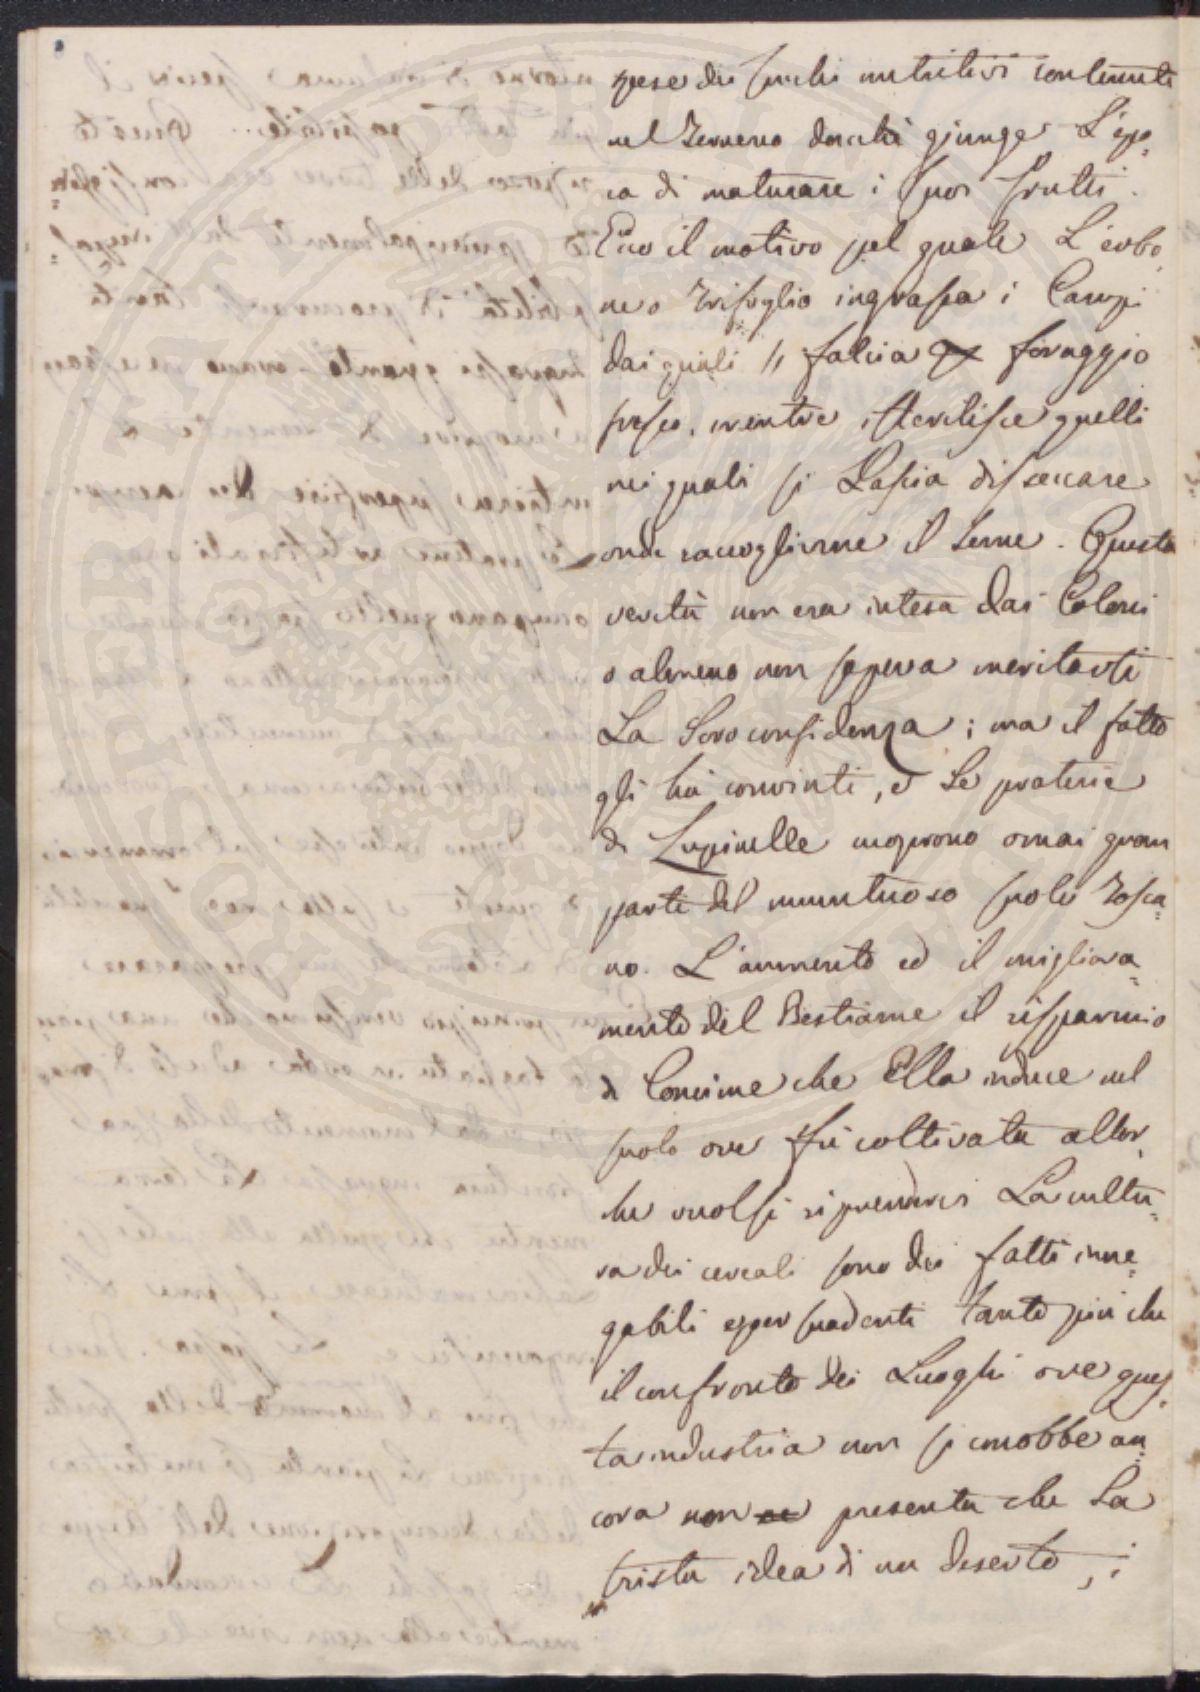 spese dei succhi nutritivi contenuti
nel Terreno dacchè giunge L'epo=
ca di maturare i suoi frutti.
Ecco il motivo pel quale L'erba
ne o Trifoglio ingrassa i Campi
dai quali si falcia foraggio
fresco, mentre isterilisce quelli
nei quali si Lascia disseccare
onde raccoglierne il Seme. Questa
verità non era intesa dai Coloni
o almeno non sapeva meritarsi
La Loro confidenza; ma il fatto
gli ha convinti, e Le praterie
di Lupinelle cuoprono omai gran
parte del muntuoso suolo Tosca=
no. L'aumento ed il migliora=
mento del Bestiame il risparmio
di Concime che Ella induce nel
suolo ove fu coltivata allor
che vuolsi riprendere La cultu=
ra dei cereali sono dei fatti inne=
gabili e persuadenti tanto più che
il confronto dei Luoghi ove ques=
ta industria non si conobbe an=
cora non presenta che La
trista idea di un deserto, i